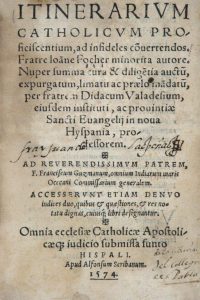 ITINERARIVM
CATHOLICVM PRO-
ficiscentium, ad infideles cõuertendos.
Fratre Ioãne Focher minorita autore.
Nuper summa cura & diligẽtia auctũ,
expurgatum, limati ac prælo mãdatũ,
per fratrẽ Didacum Valadesium,
eiusdem instituti, ac prouintiæ
Sancti Euangelij in noua
Hyspania, pro-
fessorem.
AD REVERENDISSIMVM PATREM,
F. Franciscum Guzmanum, omnium Indiarum maris
Oceani Commissarium generalem.
ACCESSERVNT ETIAM DENVO
indices duo, quibus & quæstiones, & res no-
tatu dignæ, cuiusq; libri designantur.
Omnia ecclesiæ Catholicæ Apostoli-
cæq; iudicio submissa sunto
HISPALI.
Apud Alfonsum Scribanum.
1574.